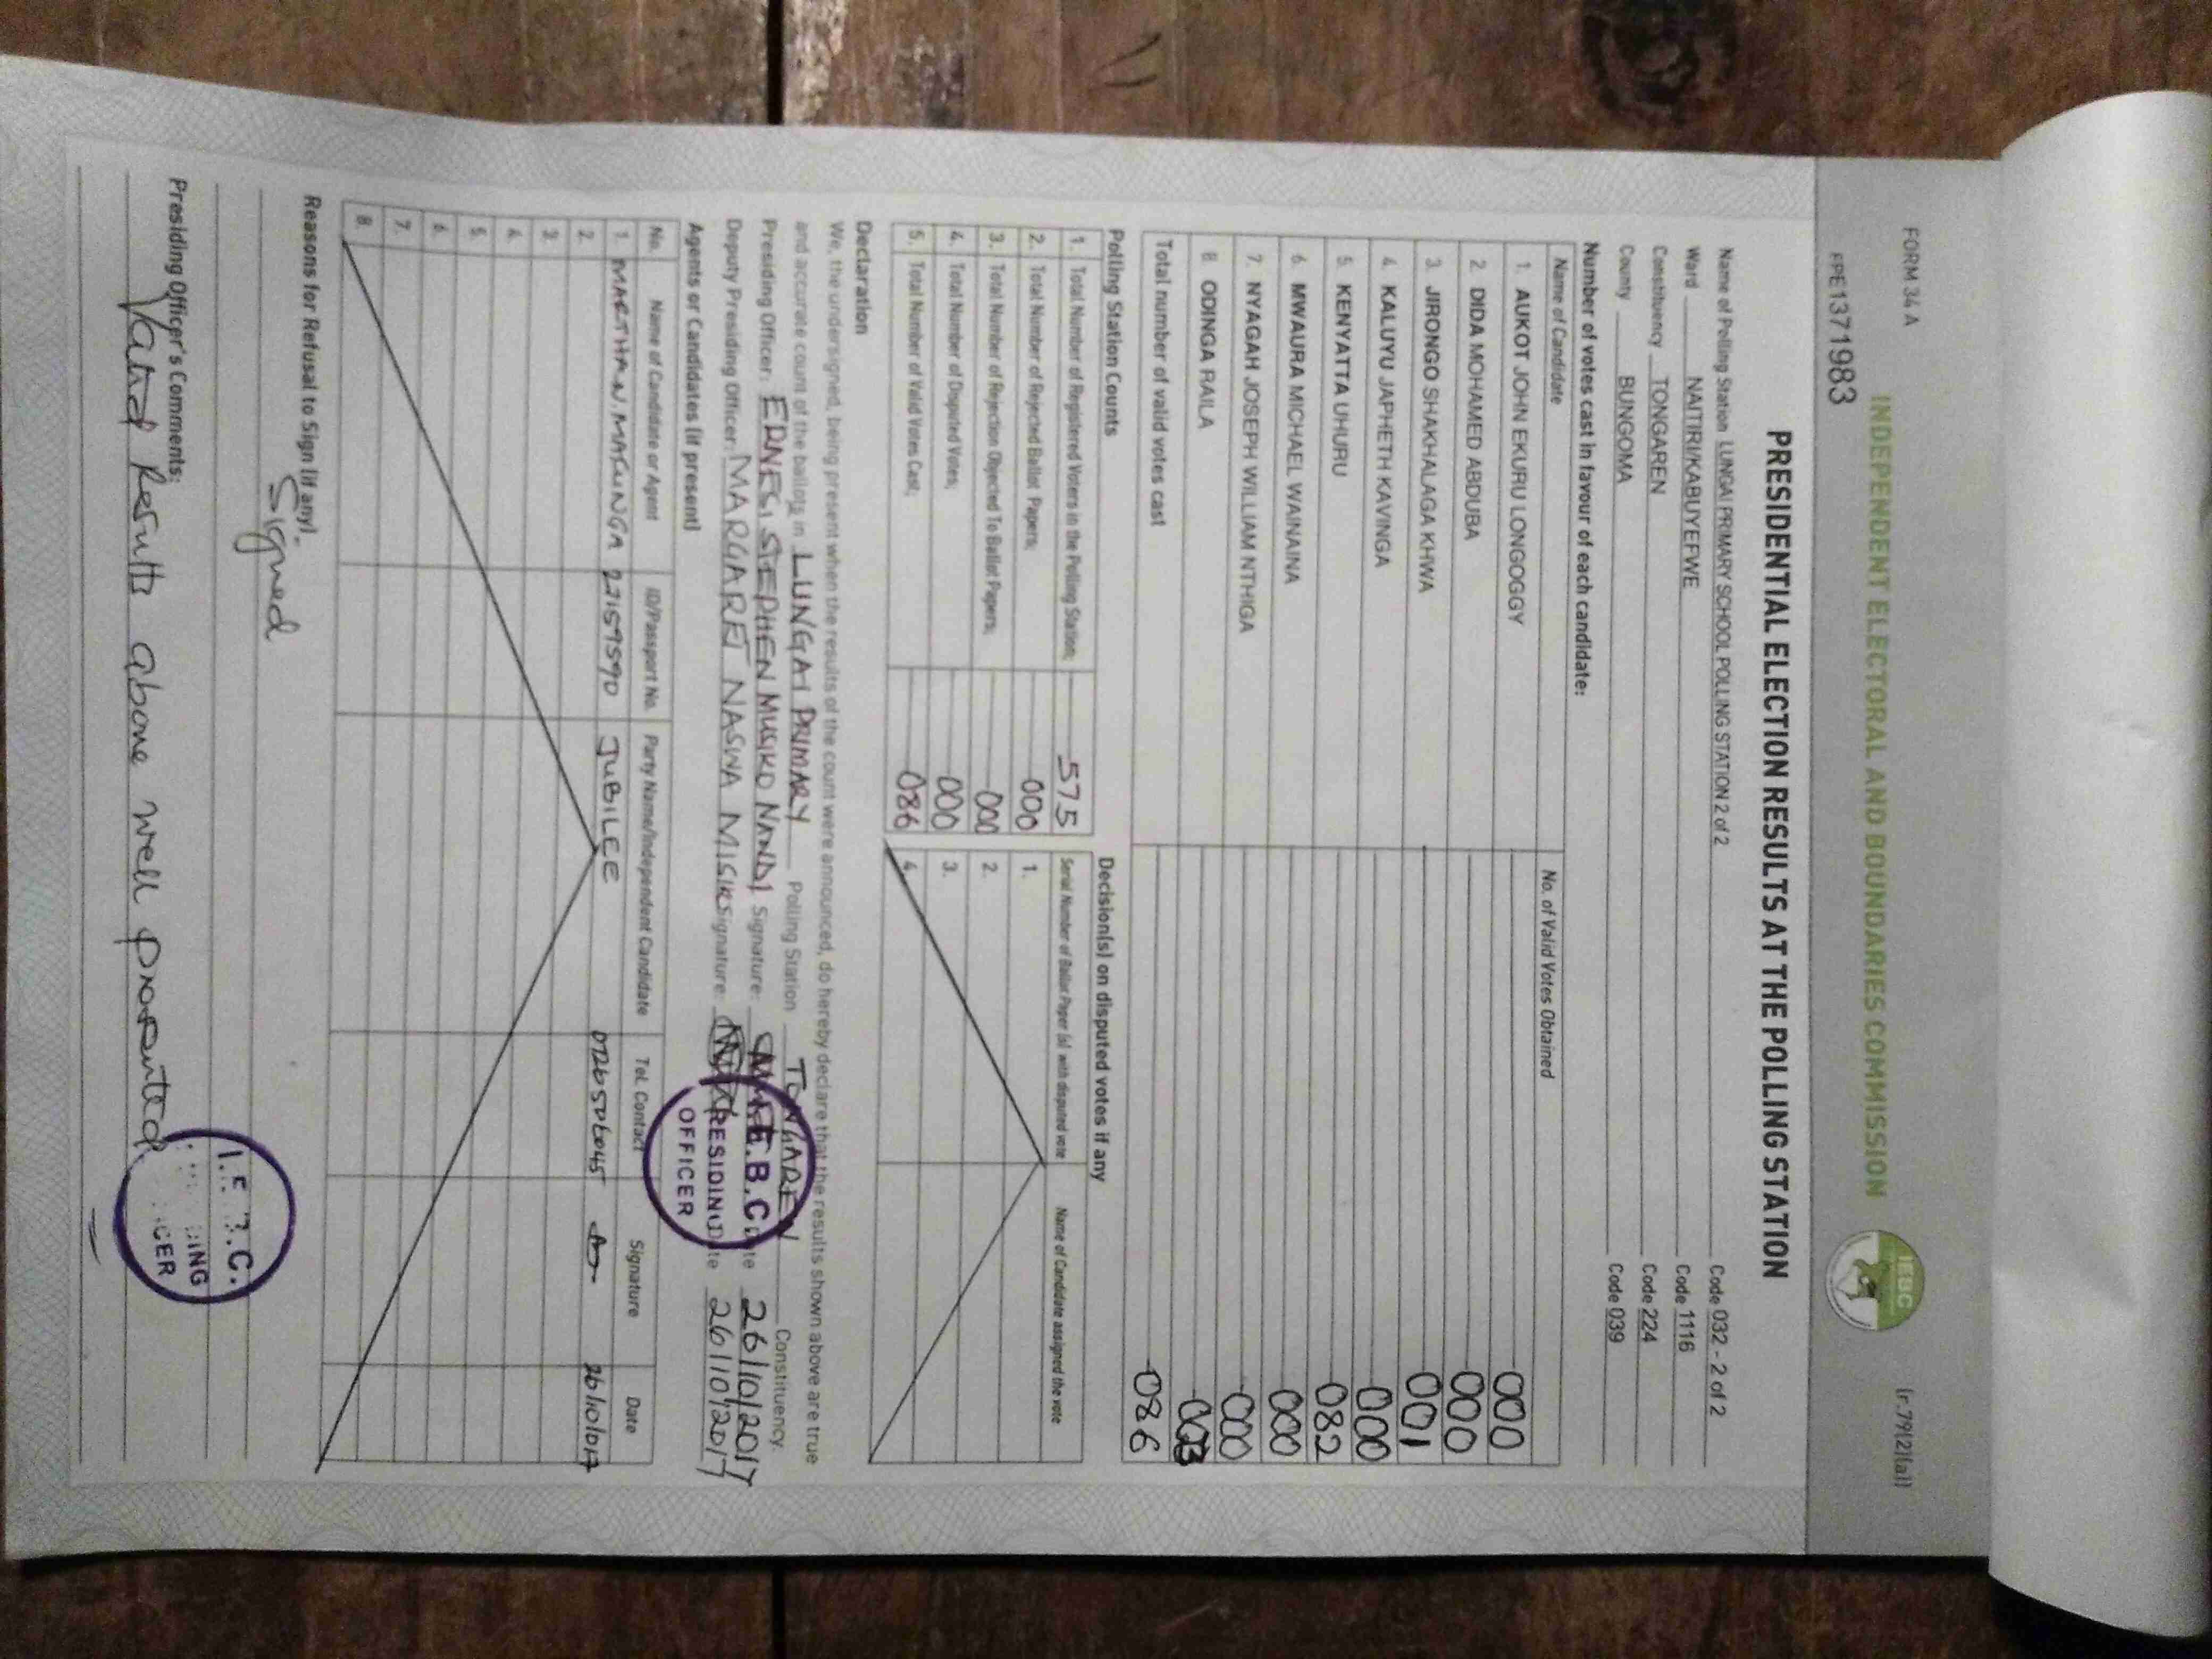 FORM 34 A
(r.79(2)(a))
INDEPENDENT ELECTORAL AND BOUNDARIES COMMISSION
IEBC
PPE1371983
PRESIDENTIAL ELECTION RESULTS AT THE POLLING STATION
Name of Polling Station LUNGAI PRIMARY SCHOOL POLLING STATION 2 of 2 Code 032 - 2 of 2
Ward NAITIRI/KABUYEFWE Code 1116
Constituency TONGAREN Code 224
County BUNGOMA Code 039
Number of votes cast in favour of each candidate:
Name of Candidate No. of Valid Votes Obtained
1. AUKOT JOHN EKURU LONGOGGY 000
2. DIDA MOHAMED ABDUBA 000
3. JIRONGO SHAKHALAGA KHWA 001
4. KALUYU JAPHETH KAVINGA 000
5. KENYATTA UHURU 082
6. MWAURA MICHAEL WAINAINA 000
7. NYAGAH JOSEPH WILLIAM NTHIGA 000
8 ODINGA RAILA 003
Total number of valid votes cast 086
Polling Station Counts
1. Total Number of Registered Voters in the Polling Station; 575
2. Total Number of Rejected Ballot Papers; 000
3. Total Number of Rejection Objected To Ballot Papers; 000
4. Total Number of Disputed Votes; 000
5. Total Number of Valid Votes Cast; 086
Decision(s) on disputed votes if any
Serial Number of Ballot Paper (s) with disputed vote Name of Candidate assigned the vote
1.
2.
3.
4.
Declaration
We, the undersigned, being present when the results of the count were announced, do hereby declare that the results shown above are true
and accurate count of the ballots in LUNGAI PRIMARY Polling Station TONGAREN Constituency.
Presiding Officer: ERNEST STEPHEN MUSIKO NANDI Signature: Date 26/10/2017
Deputy Presiding Officer: MARGARET NASWA MISIKO Signature: Date 26/10/2017
I.E.B.C.
PRESIDING
OFFICER
Agents or Candidates (if present)
No. Name of Candidate or Agent ID/Passport No. Party Name/Independent Candidate Tel. Contact Signature Date
1. MARTHA N. MAKUNGA 22159590 JUBILEE 0726506045 26/10/017
2.
3.
4.
5.
6.
7.
8.
Reasons for Refusal to Sign (if any).
Signed
Presiding Officer's Comments:
Results above well
I.E.B.C.